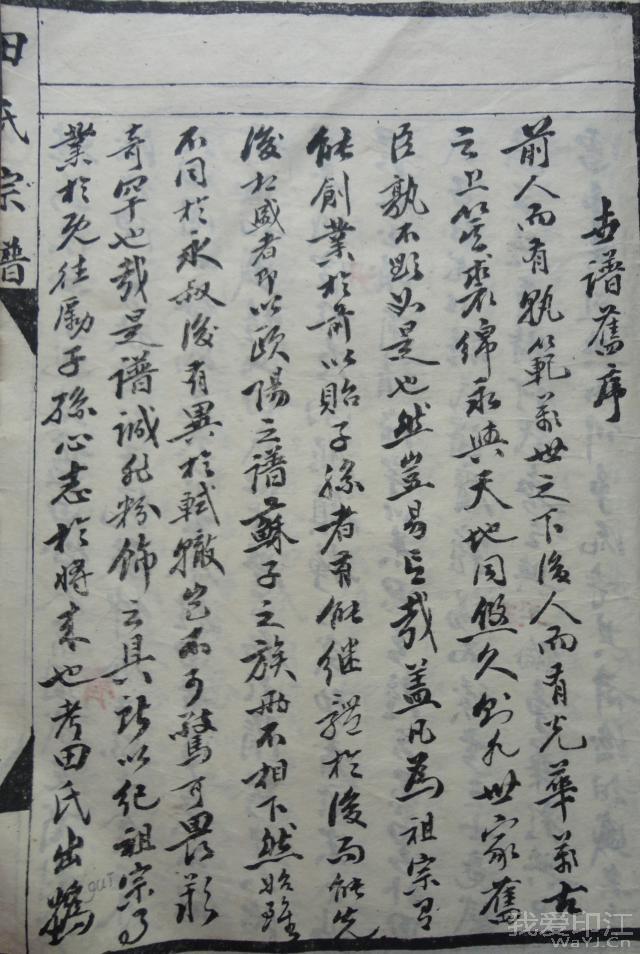 世譜舊序
前人而有軌範萬世之下後人而有光華萬古
之上箕裘綿永與天地同悠久則九世家舊
臣孰不題如是也然豈易言哉蓋凡為祖宗
能創業於前以貽子孫者有能繼體於後而能先
後相盛者即以歐陽之譜蘇子之族而不相下然始雖
不同於永叔後有異於軾轍豈不可驚可畏哉
奇罕也哉是譜誠非粉飾之具所以紀祖宗
業於既往勵子孫心志於將來也考田氏出
田氏宗譜
我爱印江
WaYJ.CN